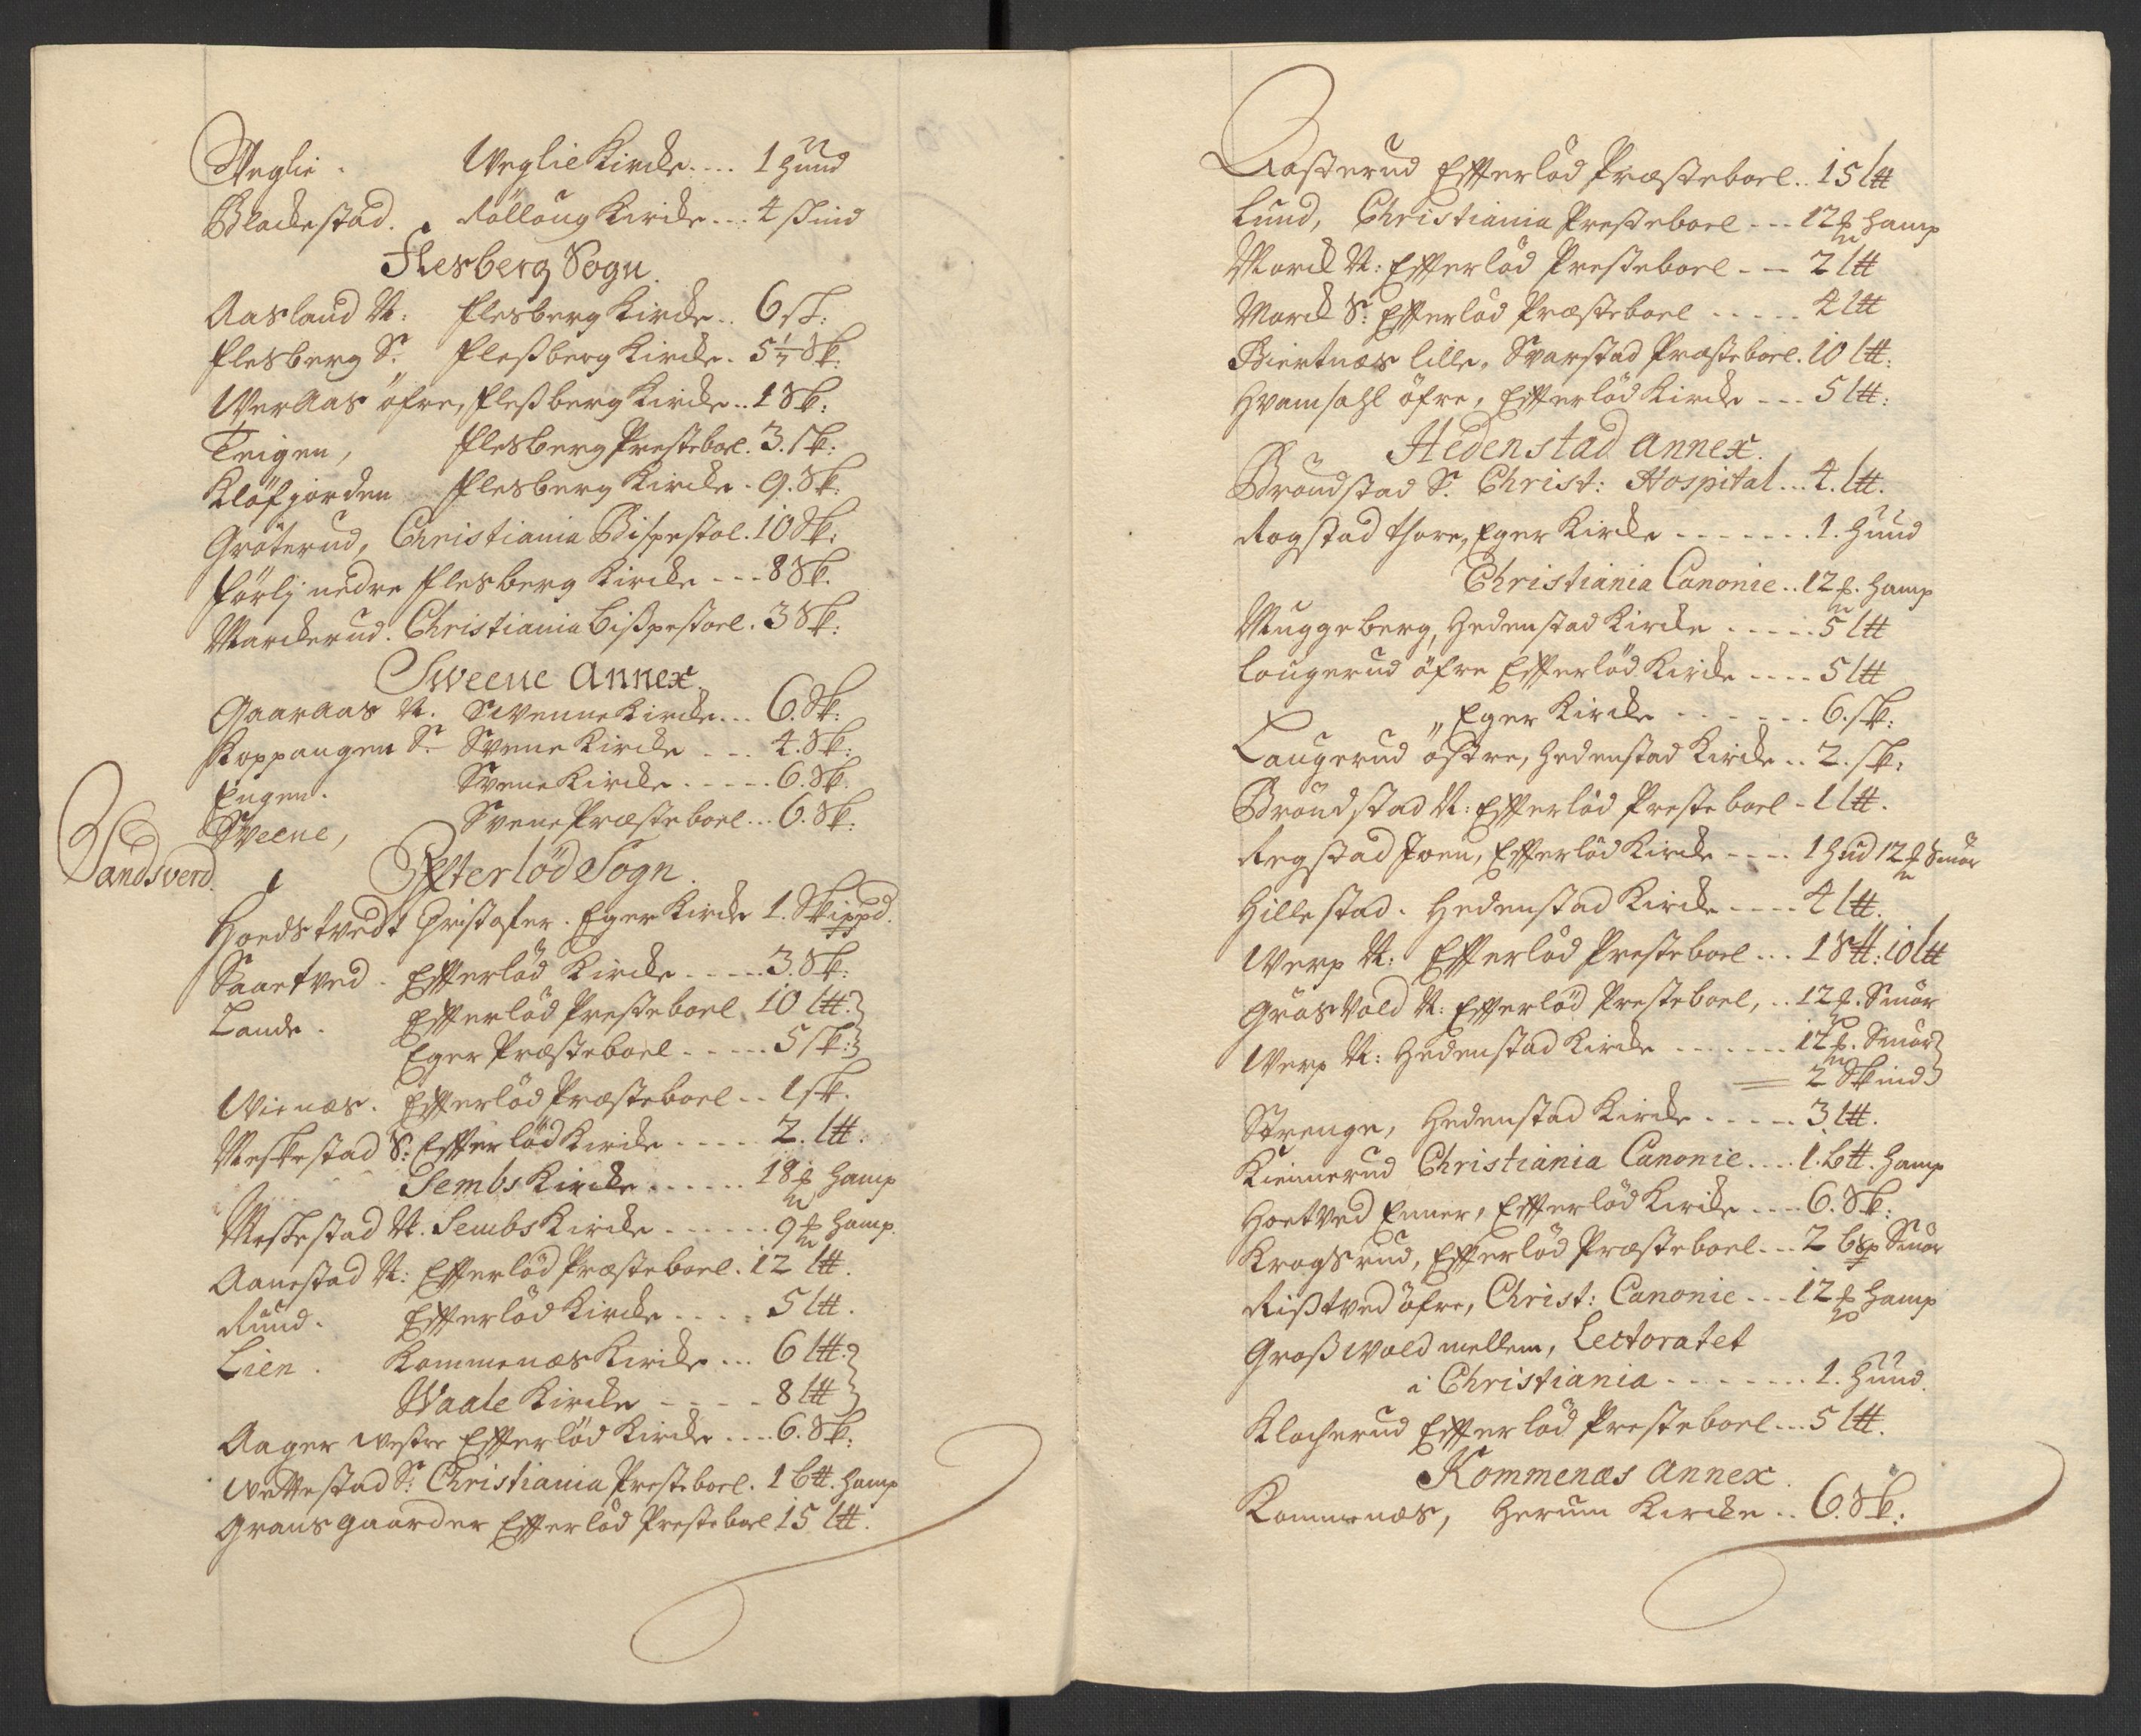 Weglie. Weglie Kircke.... 1 Huud
Blackestad. Rollaug Kircke... 4 skind
Flesberg Sogn.
Aasland N: Flesberg Kircke.. 6 sk:
Flesberg S. Flesberg Kircke. 5 1/7 Sk:
WerAas öfre, Flesberg Kircke.. 1 Sk:
Teigen, Flesberg Prestebol. 3. sk:
Klöfjorden Flesberg Kircke. 9. Sk:
Gröterud, Christiania Bispestol. 10 Sk:
Förlj nedre Flesberg Kircke --- 8 Sk.
Marckerud. Christiania Bispestoel. 3 Sk:
Sweene Annex.
Gaaraas N. Swenne Kircke... 6. Sk:
Koppangen S. Svene Kircke --- 4. Sk:
Engen. Svene Kircke ..... 6. Sk.
Sveene, Svene Præsteboel... 6. Sk:
Sandsverd. Efterlöd Sogn.
Hoedstvedt Christofer. Eger Kircke 1. Skippd.
Saaetved. Efterlöd Kircke ..... 3. Sk:
Lande. Efterlöd Presteboel 10 l℔.
Eger Præsteboel ..... 5 sk:
Wienæs. Efterlöd Præsteboel .. 1 sk.
Meskestad S: Efterlöd Kircke .... 2. l℔.
Sembs Kircke ...... 18 ℔ hamp
Meskestad N. Sembs Kircke ...... 9 ℔ hamp.
Aanestad N: Efterlöd Præsteboel. 12 l℔.
Ruud. Efterlöd Kircke .... 5 l℔.
Lien. Kommenæs Kircke... 6 l℔.
Waale Kircke - - - - 8 l℔
Aager westre Efterlöd Kircke ... 6. Sk:
Wettestad S: Christiania Presteboel. 1 b℔. hamp
Gransgaarder Efterlöd Presteboel 15 l℔.
Aasterud Efterlöd Præsteboel.. 15 l℔
Lund, Christiania Presteboel --- 12 ℔ hamp
Morck N: Efterlöd Presteboel - - 2 l℔
Morck S: Efterlöd Præsteboel ..... 4 l℔
Biertnæs lille. Svarstad Præsteboel. 10 l℔.
Hvamsahl öfre, Efterlöd Kircke --- 5 l℔:
Hedenstad Annex.
Bröndstad S. Christ: Hospital... 4. l℔.
Rogstad Thore, Eger Kircke ....... 1. Huud
Christiania Canonie.. 12 ℔. hamp
Muggeberg, Hedenstad Kircke ..... 5 l℔
Lougerud öfre Efterlöd Kircke .... 5 l℔
„ Eger Kircke ...... 6. sk:
Laugerud östre, Hedenstad Kircke .. 2. sk:
Bröndstad N: Efterlöd Presteboel - 1 l℔.
Regstad Joen, Efterlöd Kircke .... 1 hud 12 ℔ Smör
Hillestad. Hedenstad Kircke .... 4 l℔.
Werp N: Efterlöd Presteboel ... 1 S℔: 10 l℔
Gräsvold N: Efterlöd Presteboel, .. 12 ℔. Smör
Werp N: Hedenstad Kircke ...... 12 ℔. Smör
= 2 Skind
Strenge, Hedenstad Kircke ..... 3 l℔.
Kiennerud Christiania Canonie.... 1. b℔. hamp
Hoetved Enner, Efterlöd Kircke .... 6. Sk:
Krogsrud, Efterlöd Præsteboel... 2 bsp Smör
Risstved öfre, Christ: Canonie --- 12 ℔ hamp
Groswold mellem, Lectoratet
i Christiania ........ 1. Huud.
Klocherud Efterlöd Presteboel... 5 l℔.
Kommenæs Annex.
Kommenæs, Herum Kircke .. 6. Sk: